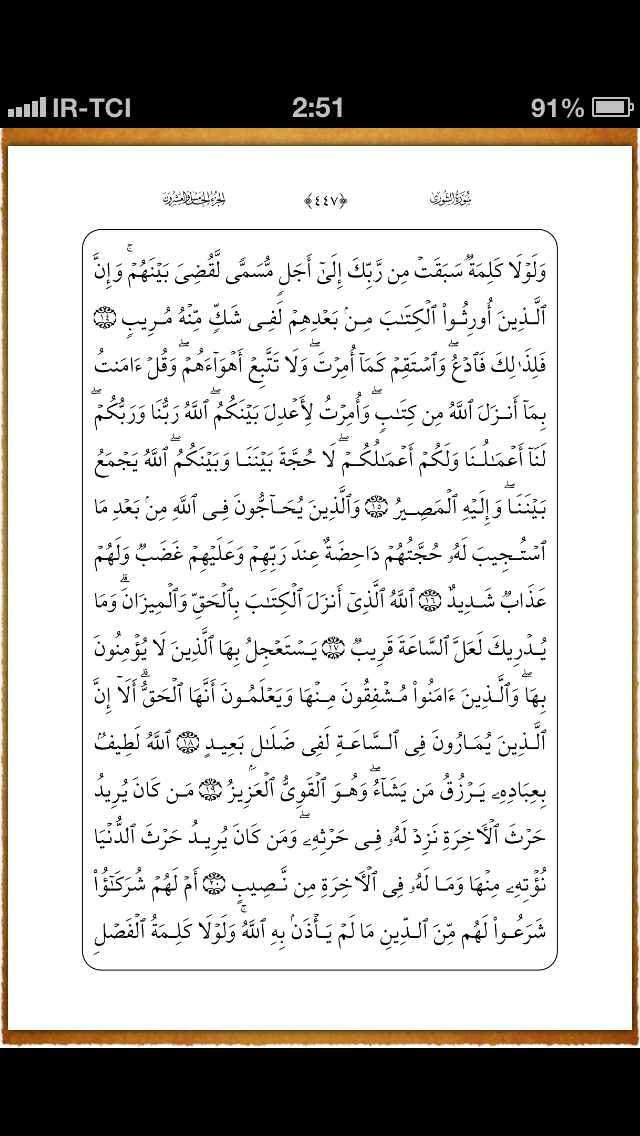 IR-TCI 2:51 91%
سُورَةُ الشُّورىٰ ﴿٤٤٧﴾ الجزء الخامس والعشرون
وَلَوۡلَا كَلِمَةٌ سَبَقَتۡ مِن رَّبِّكَ إِلَىٰٓ أَجَلٍ مُّسَمًّى لَّقُضِيَ بَيۡنَهُمۡۚ وَإِنَّ
ٱلَّذِينَ أُورِثُواْ ٱلۡكِتَٰبَ مِنۢ بَعۡدِهِمۡ لَفِي شَكٍّ مِّنۡهُ مُرِيبٍ ١٤
فَلِذَٰلِكَ فَٱدۡعُۖ وَٱسۡتَقِمۡ كَمَآ أُمِرۡتَۖ وَلَا تَتَّبِعۡ أَهۡوَآءَهُمۡۖ وَقُلۡ ءَامَنتُ
بِمَآ أَنزَلَ ٱللَّهُ مِن كِتَٰبٍۖ وَأُمِرۡتُ لِأَعۡدِلَ بَيۡنَكُمُۖ ٱللَّهُ رَبُّنَا وَرَبُّكُمۡۖ
لَنَآ أَعۡمَٰلُنَا وَلَكُمۡ أَعۡمَٰلُكُمۡۖ لَا حُجَّةَ بَيۡنَنَا وَبَيۡنَكُمُۖ ٱللَّهُ يَجۡمَعُ
بَيۡنَنَاۖ وَإِلَيۡهِ ٱلۡمَصِيرُ ١٥ وَٱلَّذِينَ يُحَآجُّونَ فِي ٱللَّهِ مِنۢ بَعۡدِ مَا
ٱسۡتُجِيبَ لَهُۥ حُجَّتُهُمۡ دَاحِضَةٌ عِندَ رَبِّهِمۡ وَعَلَيۡهِمۡ غَضَبٌ وَلَهُمۡ
عَذَابٌ شَدِيدٌ ١٦ ٱللَّهُ ٱلَّذِيٓ أَنزَلَ ٱلۡكِتَٰبَ بِٱلۡحَقِّ وَٱلۡمِيزَانَۗ وَمَا
يُدۡرِيكَ لَعَلَّ ٱلسَّاعَةَ قَرِيبٌ ١٧ يَسۡتَعۡجِلُ بِهَا ٱلَّذِينَ لَا يُؤۡمِنُونَ
بِهَاۖ وَٱلَّذِينَ ءَامَنُواْ مُشۡفِقُونَ مِنۡهَا وَيَعۡلَمُونَ أَنَّهَا ٱلۡحَقُّۗ أَلَآ إِنَّ
ٱلَّذِينَ يُمَارُونَ فِي ٱلسَّاعَةِ لَفِي ضَلَٰلٍ بَعِيدٍ ١٨ ٱللَّهُ لَطِيفُۢ
بِعِبَادِهِۦ يَرۡزُقُ مَن يَشَآءُۖ وَهُوَ ٱلۡقَوِيُّ ٱلۡعَزِيزُ ١٩ مَن كَانَ يُرِيدُ
حَرۡثَ ٱلۡأٓخِرَةِ نَزِدۡ لَهُۥ فِي حَرۡثِهِۦۖ وَمَن كَانَ يُرِيدُ حَرۡثَ ٱلدُّنۡيَا
نُؤۡتِهِۦ مِنۡهَا وَمَا لَهُۥ فِي ٱلۡأٓخِرَةِ مِن نَّصِيبٍ ٢٠ أَمۡ لَهُمۡ شُرَكَٰٓؤُاْ
شَرَعُواْ لَهُم مِّنَ ٱلدِّينِ مَا لَمۡ يَأۡذَنۢ بِهِ ٱللَّهُۚ وَلَوۡلَا كَلِمَةُ ٱلۡفَصۡلِ